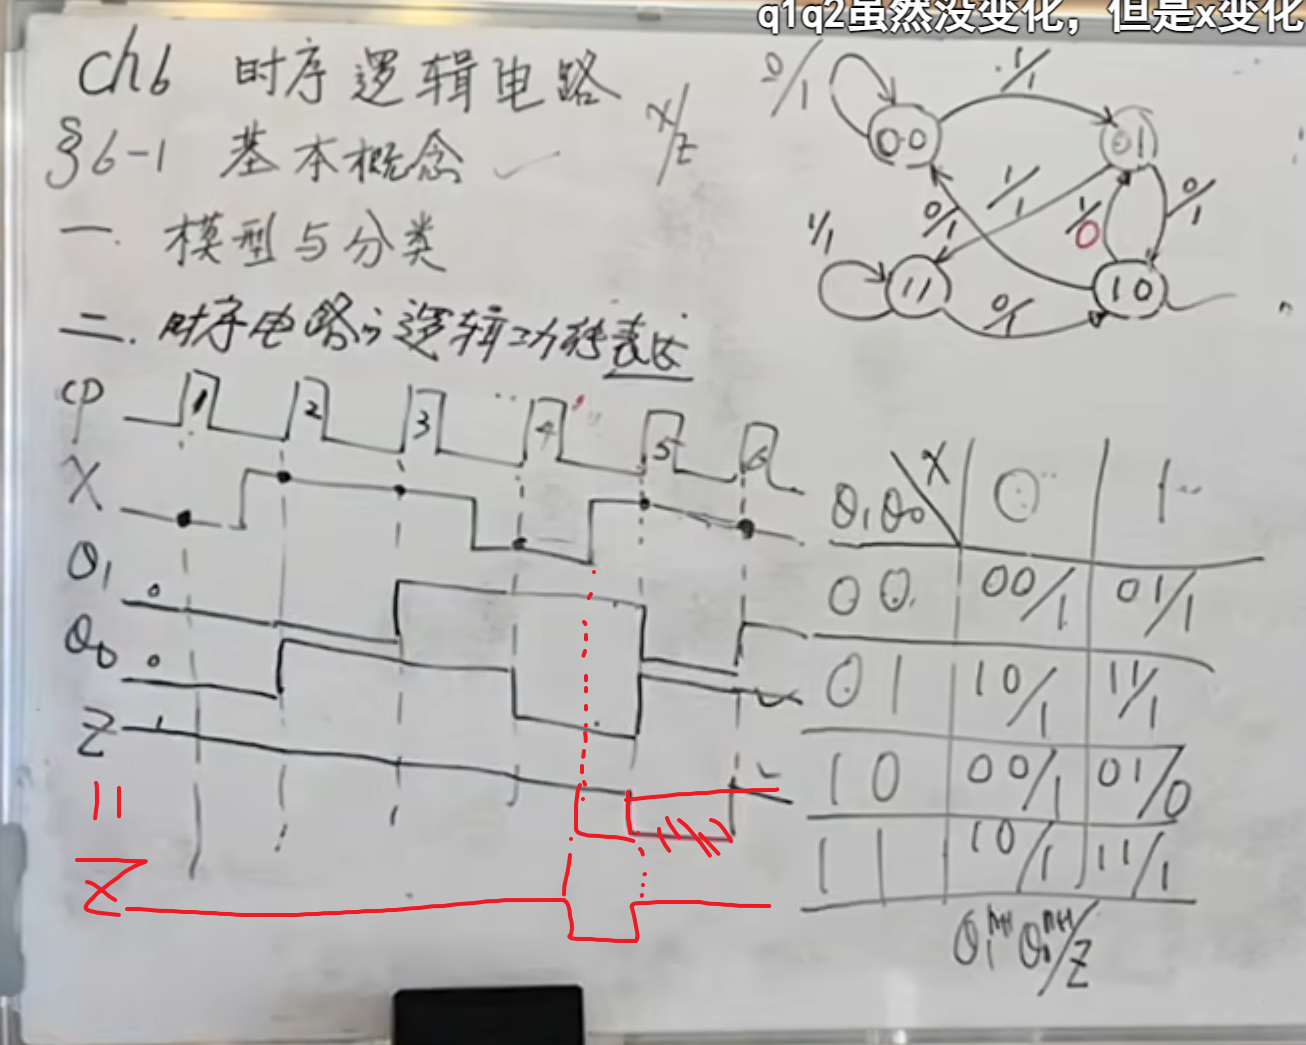 q1q2虽然没变化，但是x变化
ch6 时序逻辑电路
§6-1 基本概念
一. 模型与分类
二. 时序电路的逻辑功能表达
X/Z
0/1
1/1
00
01
0/1
1/1
1/0
0/1
1/1
11
10
0/1
CP 1 2 3 4 5 6
X
Q1 0
Q0 0
Z 1
Z
Q1Q0 X 0 1
00 00/1 01/1
01 10/1 11/1
10 00/1 01/0
11 10/1 11/1
Q1^n+1 Q0^n+1/Z